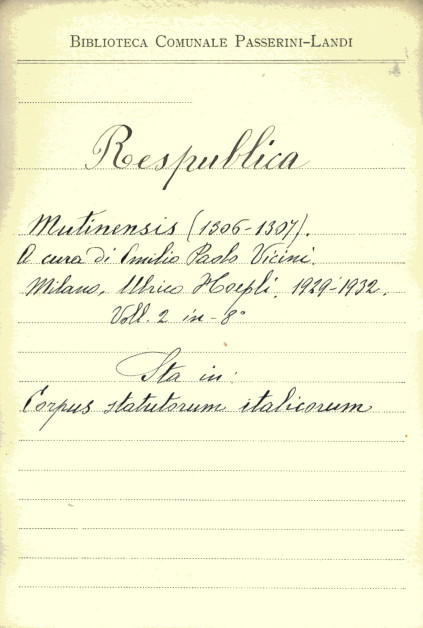 BIBLIOTECA COMUNALE PASSERINI-LANDI
Respublica
Mutinensis (1306-1307).
A cura di Emilio Paolo Vicini.
Milano, Ulrico Hoepli, 1929-1932.
Voll. 2 in-8°
Sta in:
Corpus statutorum italicorum